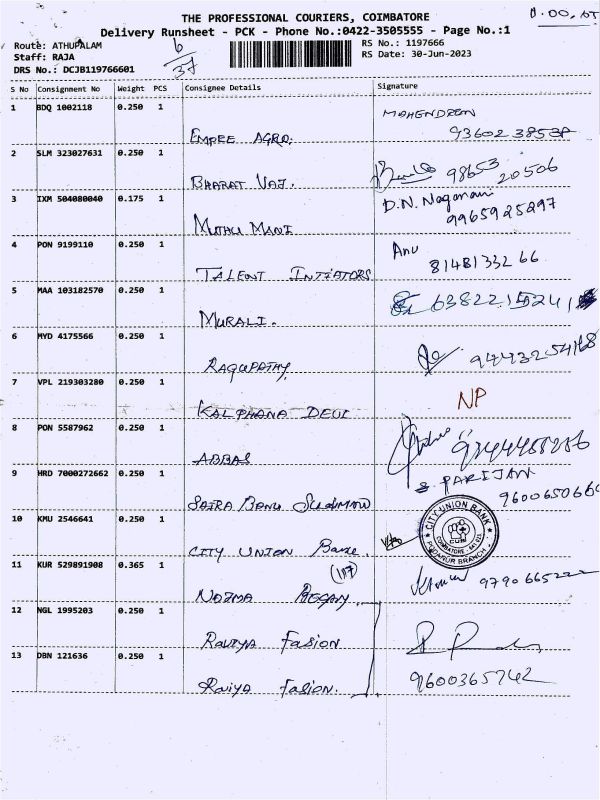 THE PROFESSIONAL COURIERS, COIMBATORE
Delivery Runsheet - PCK - Phone No.:0422-3505555 - Page No.:1
Route: ATHUPALAM
RS No.: 1197666
Staff: RAJA
RS Date: 30-Jun-2023
DRS No.: DCJB119766601
6/37
S No Consignment No Weight PCS Consignee Details Signature
1 BDQ 1002118 0.250 1
EMPEE AGRO. 93602 38538
2 SLM 323027631 0.250 1
BHARAT VAJ. 98653 20506
3 IXM 504080040 0.175 1
MUTHU MANI D.N. Nagamani 9965925297
4 PON 9199110 0.250 1
TALENT INITIATORS Anu 8148133266
5 MAA 103182570 0.250 1
MURALI.
6 MYD 4175566 0.250 1
RAGUPATHY 9443254168
7 VPL 219303280 0.250 1
KALPHANA DEVI NP
8 PON 5587962 0.250 1
ABBAS
9 HRD 7000272662 0.250 1
SAIRA BANU S. PARIJAN
10 KMU 2546641 0.250 1
CITY UNION BANK.
CITY UNION BANK
COIMBATORE
PODANUR BRANCH
11 KUR 529891908 0.365 1
NAZMA BEGAM (117)
12 NGL 1995203 0.250 1
Raviya Fasion
13 DBN 121636 0.250 1
Raviya Fasion. 9600365742